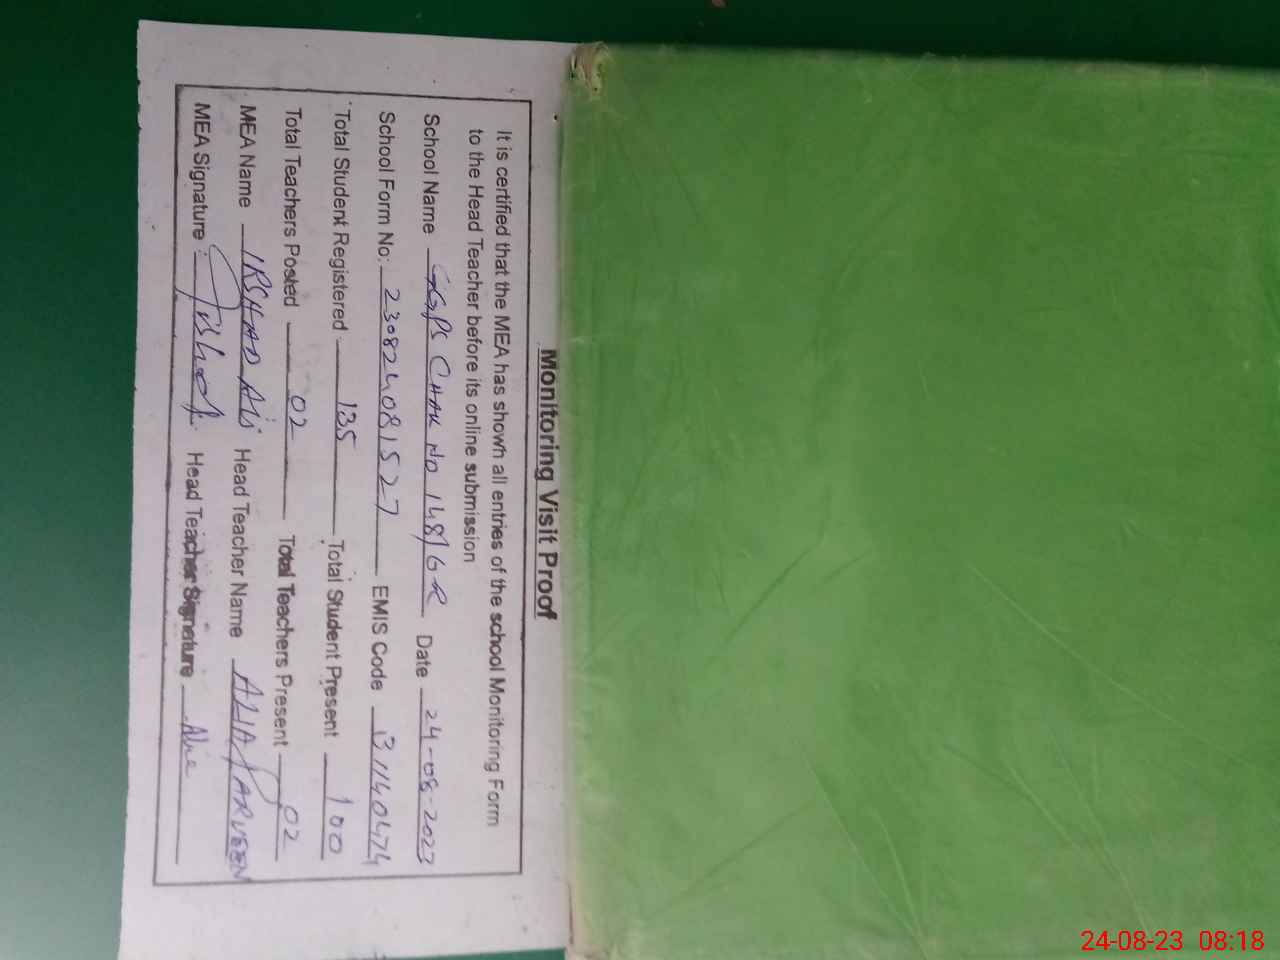 Monitoring Visit Proof
It is certified that the MEA has shown all entries of the school Monitoring Form
to the Head Teacher before its online submission
School Name GGPS CHAK NO 148/6R Date 24-08-2023
School Form No: 230824081527 EMIS Code 31140474
Total Student Registered 135 Total Student Present 100
Total Teachers Posted 02 Total Teachers Present 02
MEA Name IRSHAD Ali Head Teacher Name ALIA PARVEEN
MEA Signature : Irshad Head Teacher Signature Alia
24-08-23 08:18